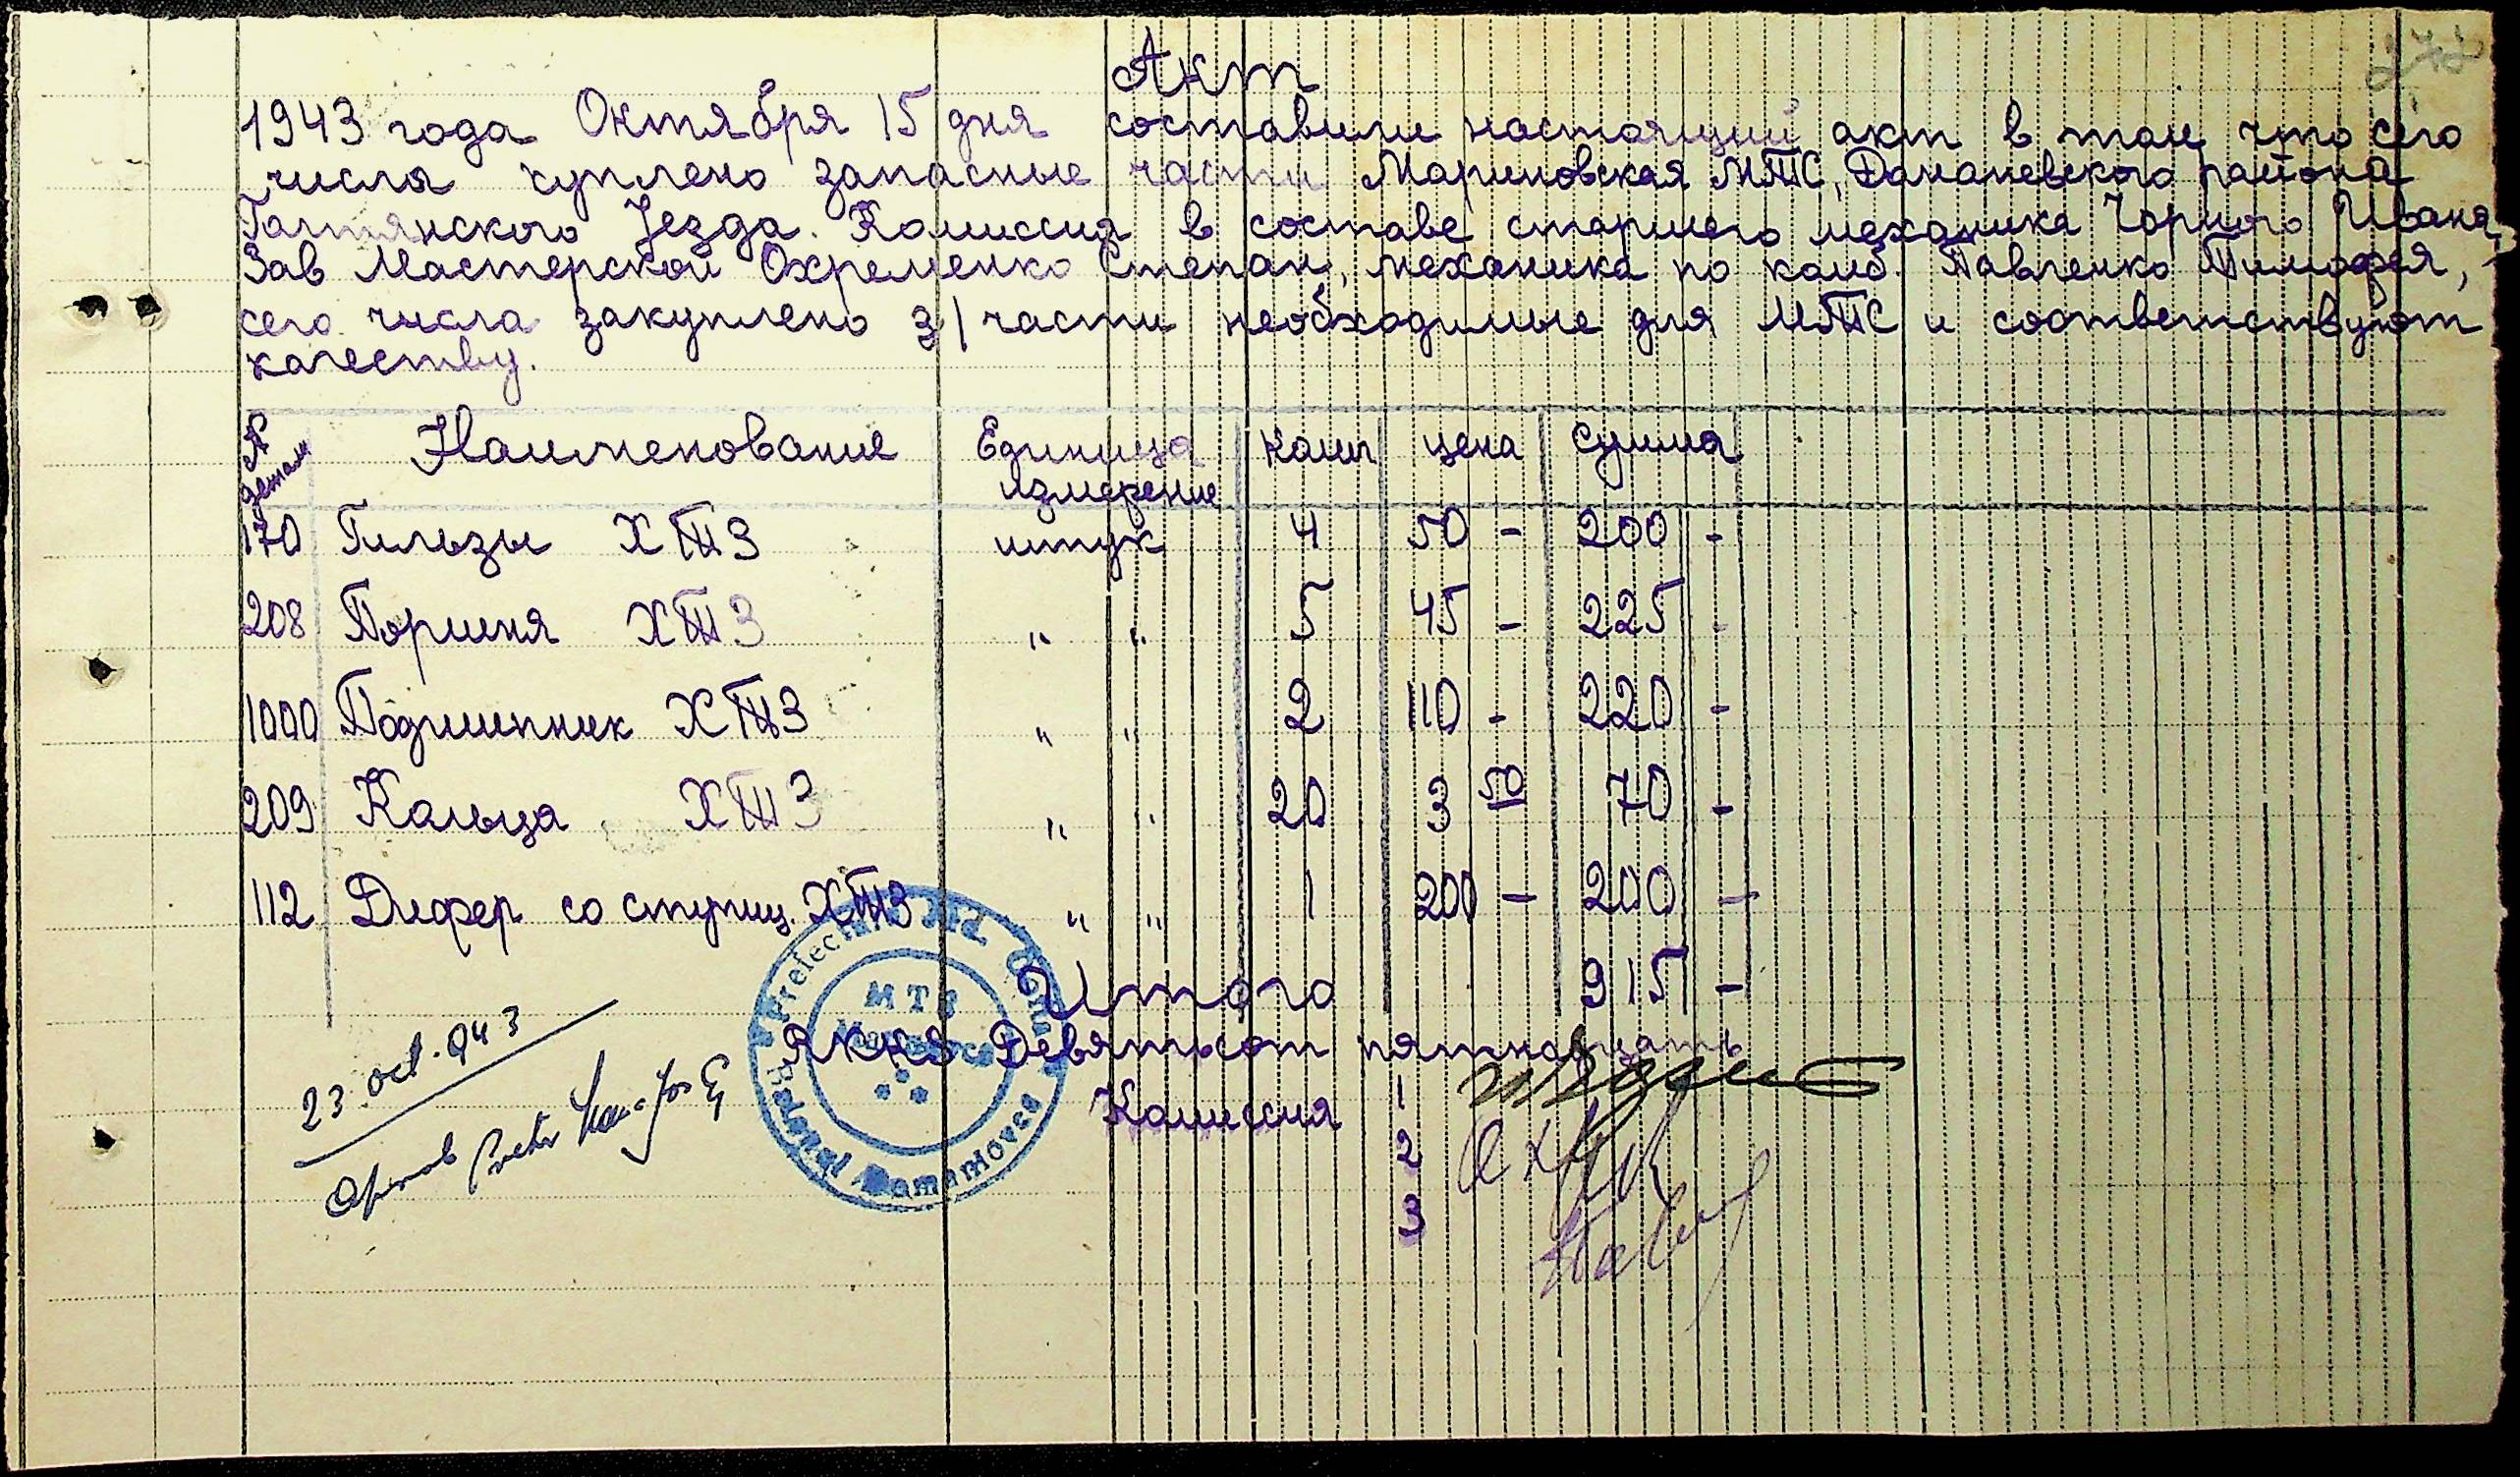 272
Акт
1943 года Октября 15 дня составили настоящий акт в том что сего
числа куплено запасные части Мариновская МТС, Доманевского района
Голтянского Уезда. Комиссия в составе старшего механика Чорного Ивана,
Зав Мастерской Охременко Степан, механика по комб. Павленко Тимофея,
сего числа закуплено з/части необходимые для МТС и соответствуют
качеству.
№ детали Наименование Единица измерение колич цена сумма
170 Гильзы ХТЗ штук 4 50 - 200 -
208 Поршня ХТЗ " " 5 45 - 225 -
1000 Подшипник ХТЗ " " 2 110 - 220 -
209 Кольца ХТЗ " " 20 3 50 70 -
112 Дифер со ступиц. ХТЗ " " 1 200 - 200 -
Итого 915 -
Девятьсот пятнадцать
Комиссия 1
2
3
23 oct. 943
Prefectura Jud. Golta
MTS
Raionul Domaniovca